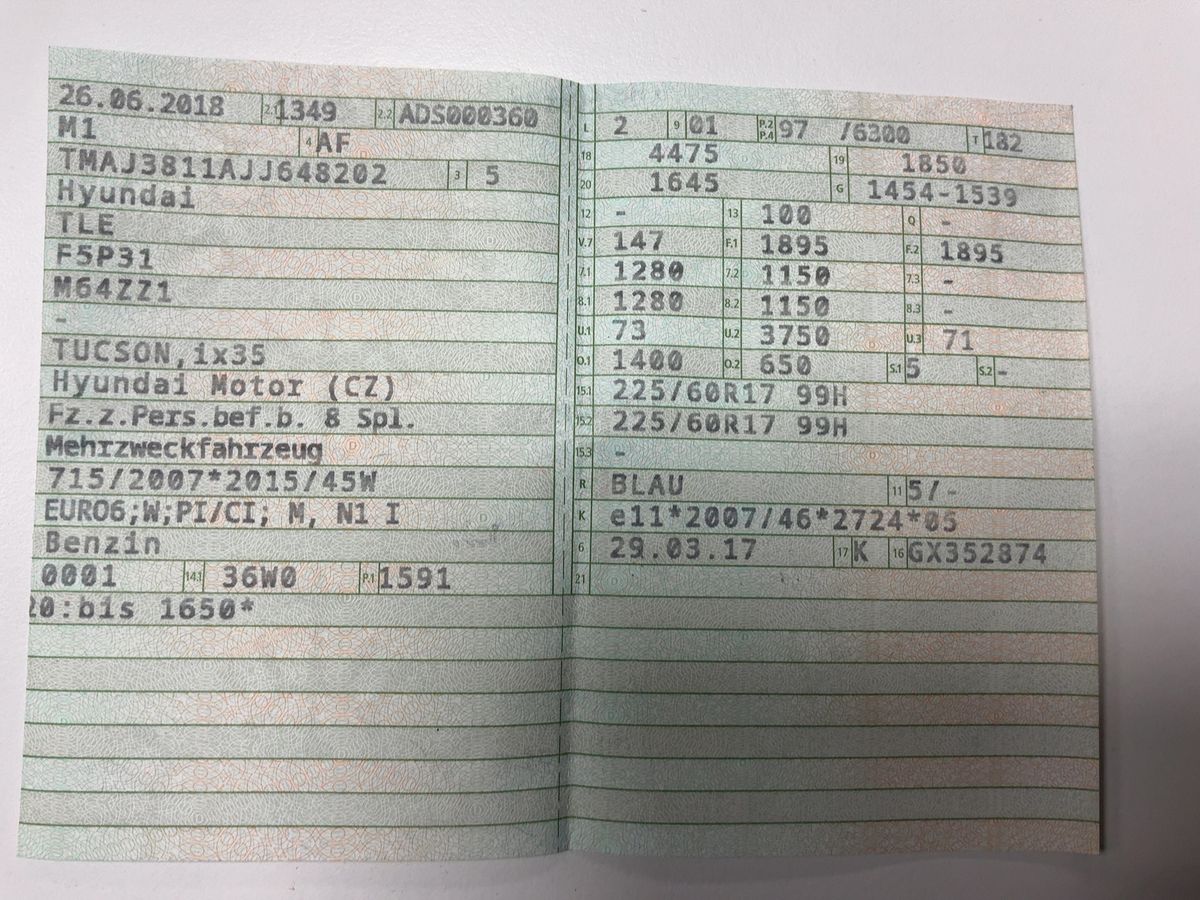 26.06.2018 2.1 1349 2.2 ADS000360
M1 4 AF
TMAJ3811AJJ648202 3 5
Hyundai
TLE
F5P31
M64ZZ1
-
TUCSON,ix35
Hyundai Motor (CZ)
Fz.z.Pers.bef.b. 8 Spl.
Mehrzweckfahrzeug
715/2007*2015/45W
EURO6;W;PI/CI; M, N1 I
Benzin
0001 14.1 36W0 P.1 1591
20:bis 1650*
L 2 9 01 P.2 P.4 97 /6300 T 182
18 4475 19 1850
20 1645 G 1454-1539
12 - 13 100 Q -
V.7 147 F.1 1895 F.2 1895
7.1 1280 7.2 1150 7.3 -
8.1 1280 8.2 1150 8.3 -
U.1 73 U.2 3750 U.3 71
O.1 1400 O.2 650 S.1 5 S.2 -
15.1 225/60R17 99H
15.2 225/60R17 99H
15.3 -
R BLAU 11 5/-
K e11*2007/46*2724*05
6 29.03.17 17 K 16 GX352874
21